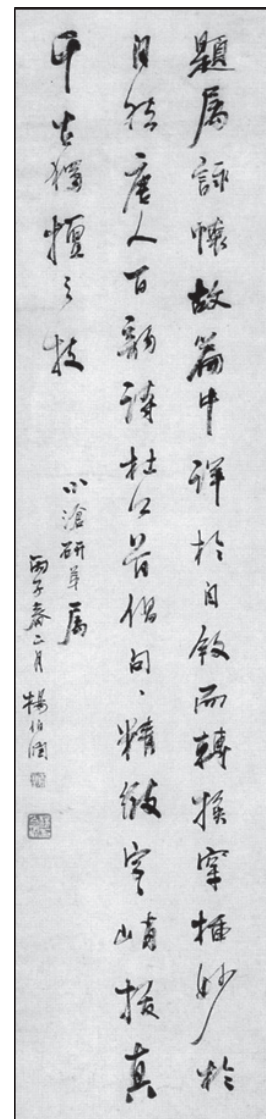 題属詠懷故篇中詳於自叙而轉換穿插妙於
自然唐人百韻詩杜公首倡句、精緻字峭拔真
千古獨擅之技
小滄研草属
丙子春二月楊伯潤